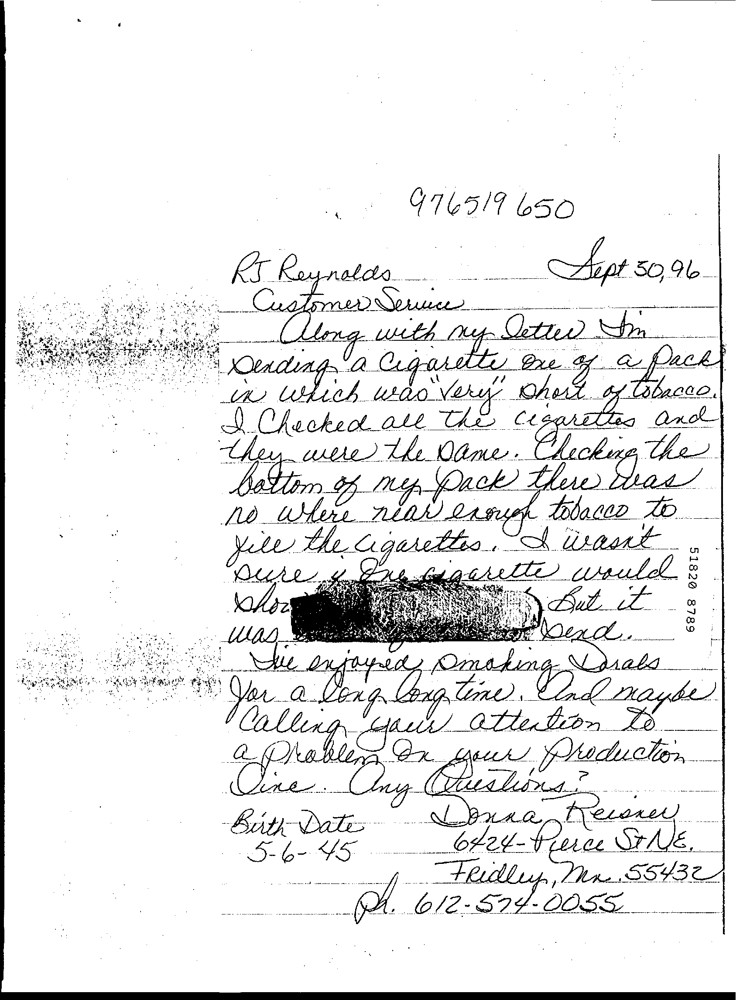 976519 650
RJ Reynolds Sept 30, 96
Customer Service
Along with my letter I'm
sending a Cigarette one of a Pack
in which was "Very" short of tobacco.
I Checked all the cigarettes and
they were the same. Checking the
bottom of my Pack there was
no where near enough tobacco to
fill the cigarettes. I wasn't
sure if One cigarette would
But it
was send.
I've enjoyed smoking Dorals
for a long long time. And maybe
Calling your attention to
a problem on your Production
Line. Any Questions?
Birth Date Donna Reisner
5-6-45 6424-Pierce St NE.
Fridley, Mn. 55432
Ph. 612-574-0055
51820 8789